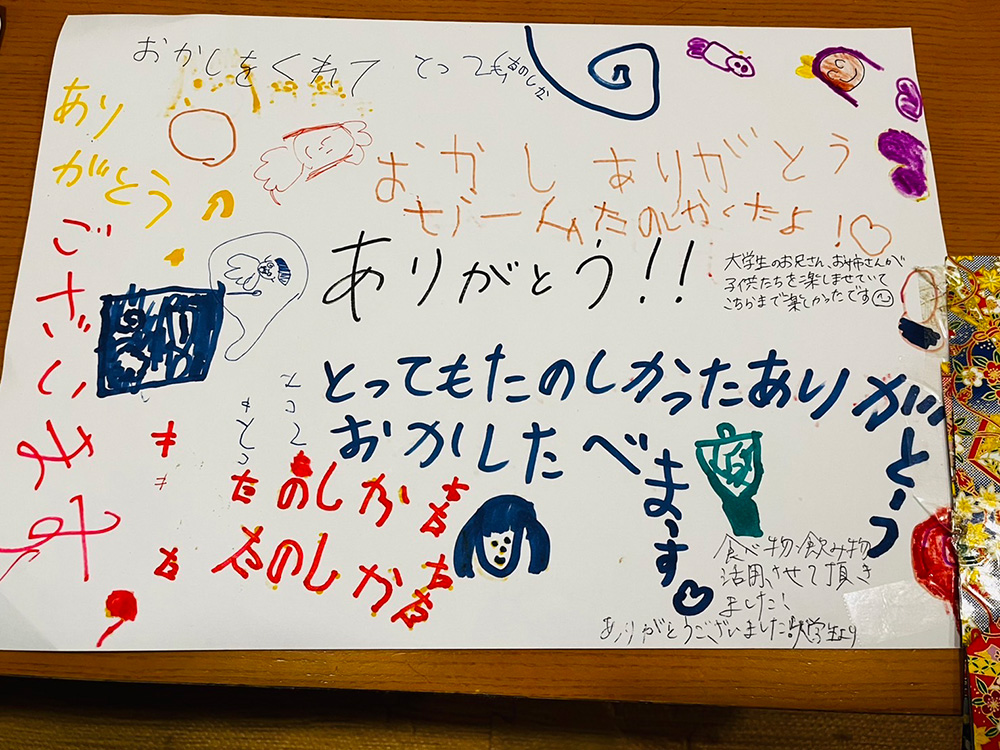 おかしをくれて
とってもたのしか
ありがとう
ございます
おかし ありがとう
たのしかったよ!
ありがとう!!
大学生のお兄さん、お姉さんが
子供たちを楽しませていて
こちらまで楽しかったです
とってもたのしかったありがとーう
おかしたべまーす
とっても
たのしかた
たのしかた
食べ物、飲み物
活用させて頂き
ました!
ありがとうございました 大学生より